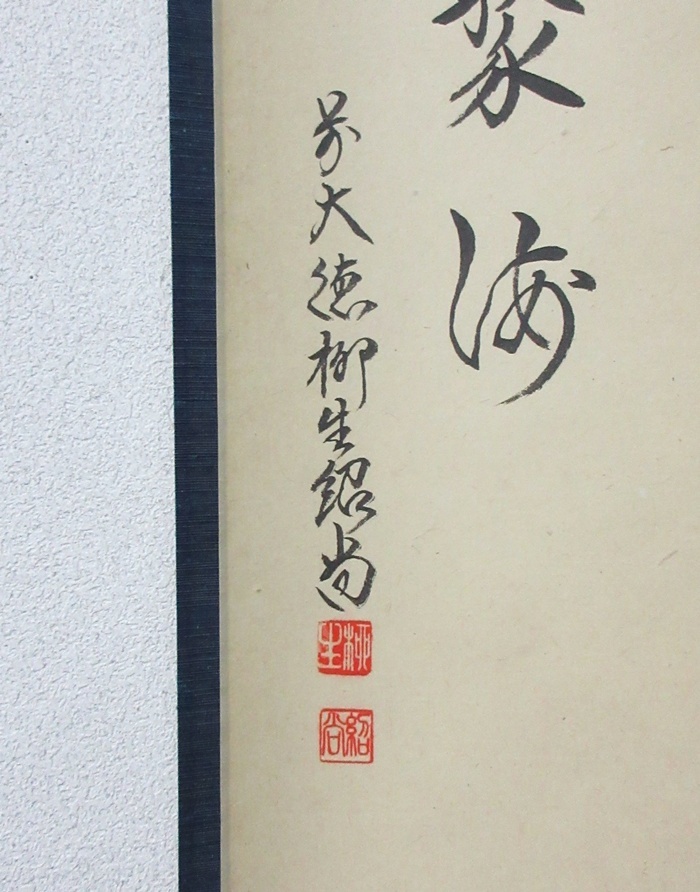 聚海
前大徳柳生紹尚
柳生
紹尚